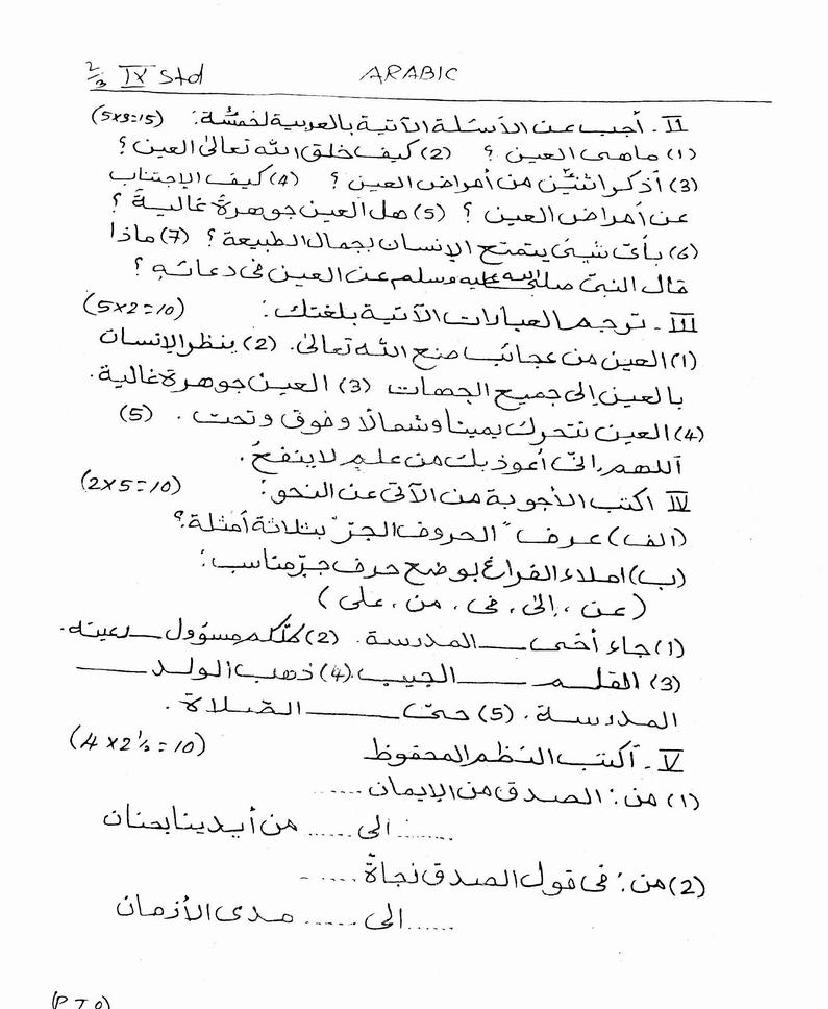 2/3 IX Std ARABIC
II - أجب عن الأسئلة الآتية بالعربية لخمسة: (5x3=15)
(1) ماهى العين ؟ (2) كيف خلق الله تعالى العين ؟
(3) أذكر اثنتين من أمراض العين ؟ (4) كيف الإجتناب
عن أمراض العين ؟ (5) هل العين جوهرة غالية ؟
(6) بأى شيئ يتمتع الإنسان بجمال الطبيعة ؟ (7) ماذا
قال النبيّ صلى الله عليه وسلم عن العين فى دعائه ؟
III - ترجم العبارات الآتية بلغتك: (5x2=10)
(1) العين من عجائب صنع الله تعالى. (2) ينظر الإنسان
بالعين إلى جميع الجهات (3) العين جوهرة غالية.
(4) العين تتحرك يمينا وشمالا وفوق وتحت . (5)
أللهم إنّى أعوذ بك من علم لا ينفع.
IV اكتب الأجوبة من الآتى عن النحو: (2x5=10)
(الف) عرف "الحروف الجرّ بثلاثة أمثلة؟
(ب) املاء الفراغ بوضع حرف جرّ مناسب:
(عن ، إلى ، فى ، من ، على)
(1) جاء أخى ـــــ المدرسة . (2) كلّكم مسؤول ـــــ رعيته.
(3) القلم ـــــ الجيب. (4) ذهب الولد ـــــ
المدرسة . (5) حىّ ـــــ الصّلاة .
V - أكتب النظم المحفوظ (4x2½=10)
(1) من: الصدق من الإيمان .....
....... الى ...... من أيدينا بحنان
(2) من: فى قول الصدق نجاةٌ .....
...... الى ...... مدى الأزمان
(P T O)